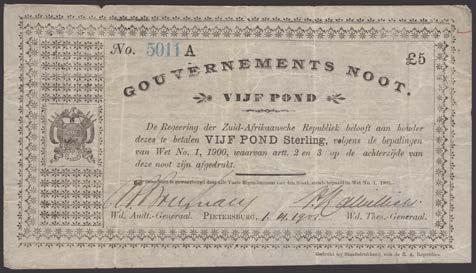 No. 5011 A
£5
GOUVERNEMENTS NOOT.
VIJF POND
De Regeering der Zuid-Afrikaansche Republiek belooft aan houder
dezes te betalen VIJF POND Sterling, volgens de bepalingen
van Wet No. 1, 1900, waarvan artt. 2 en 3 op de achterzijde van
deze noot zijn afgedrukt.
Wd. Audt.-Generaal. PIETERSBURG, 1. 4. 1901 Wd. Thes.-Generaal.
Gedrukt ter Staatsdrukkerij van de Z. A. Republiek.